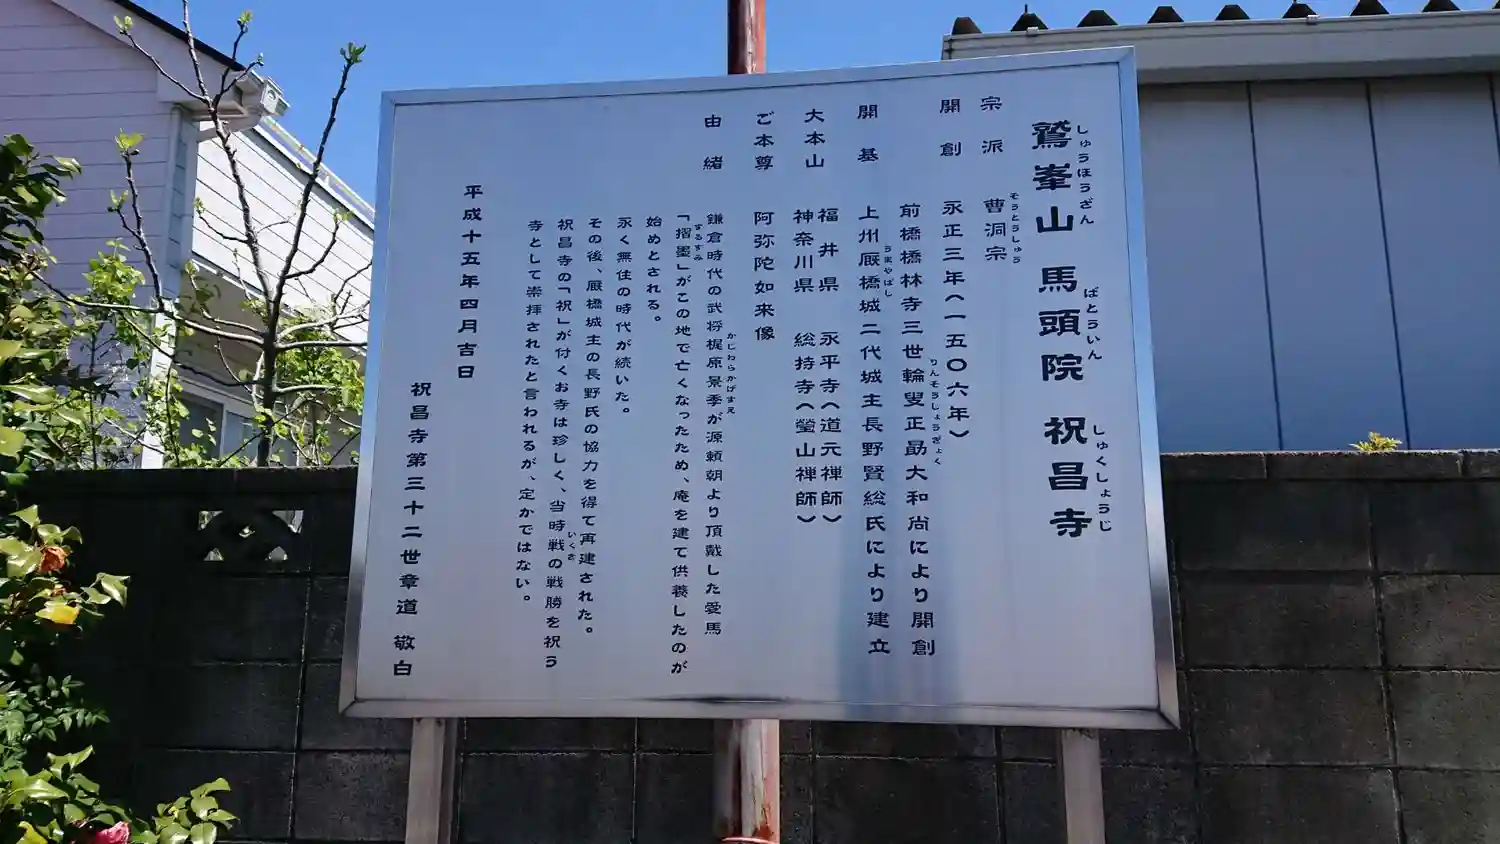 鷲峯山 馬頭院 祝昌寺
しゅうほうざん ばとういん しゅくしょうじ
宗派 曹洞宗
そうとうしゅう
開創 永正三年(一五〇六年)
前橋橋林寺三世輪叟正勗大和尚により開創
りんそうしょうぎょく
開基 上州厩橋城二代城主長野賢総氏により建立
うまやばし
大本山 福井県 永平寺(道元禅師)
神奈川県 総持寺(瑩山禅師)
ご本尊 阿弥陀如来像
由緒 鎌倉時代の武将梶原景季が源頼朝より頂戴した愛馬
かじわらかげすえ
「摺墨」がこの地で亡くなったため、庵を建て供養したのが
するすみ
始めとされる。
永く無住の時代が続いた。
その後、厩橋城主の長野氏の協力を得て再建された。
祝昌寺の「祝」が付くお寺は珍しく、当時戦の戦勝を祝う
いくさ
寺として崇拝されたと言われるが、定かではない。
平成十五年四月吉日
祝昌寺第三十二世章道 敬白